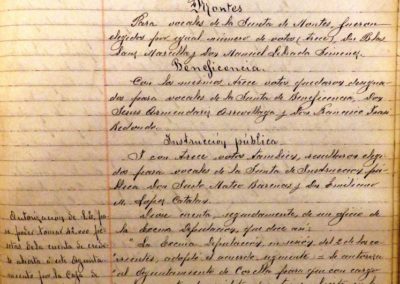 Montes
Para vocales de la Junta de Montes, fueron
elegidos por igual número de votos (trece) Don Blas
Sanz Marcilla y Don Manuel Delgado Jimenez.
Beneficencia.
Con los mismos trece votos quedaron designa-
dos para vocales de la Junta de Beneficencia, Don
Jesus Armendariz Arrvillaga y Don Francisco Juan
Redondo.
Instrucción pública
I con trece votos tambien, resultaron elegi-
dos para vocales de la Junta de Instrucción pú-
blica Don Justo Mateo Bareños y Don Emiliano
M. Lopez Catalan.
Diose cuenta, seguidamente de un oficio de
la Excma Diputación, que dice así:
"La Excma Diputación, en sesión del 2 de los co-
rrientes, adoptó el acuerdo siguiente = Se autoriza
al Ayuntamiento de Corella para que con cargo
Autorización de la
para poder tomar
setas de la cuenta de credito
abierta á este Ayunta-
miento por la Caja de